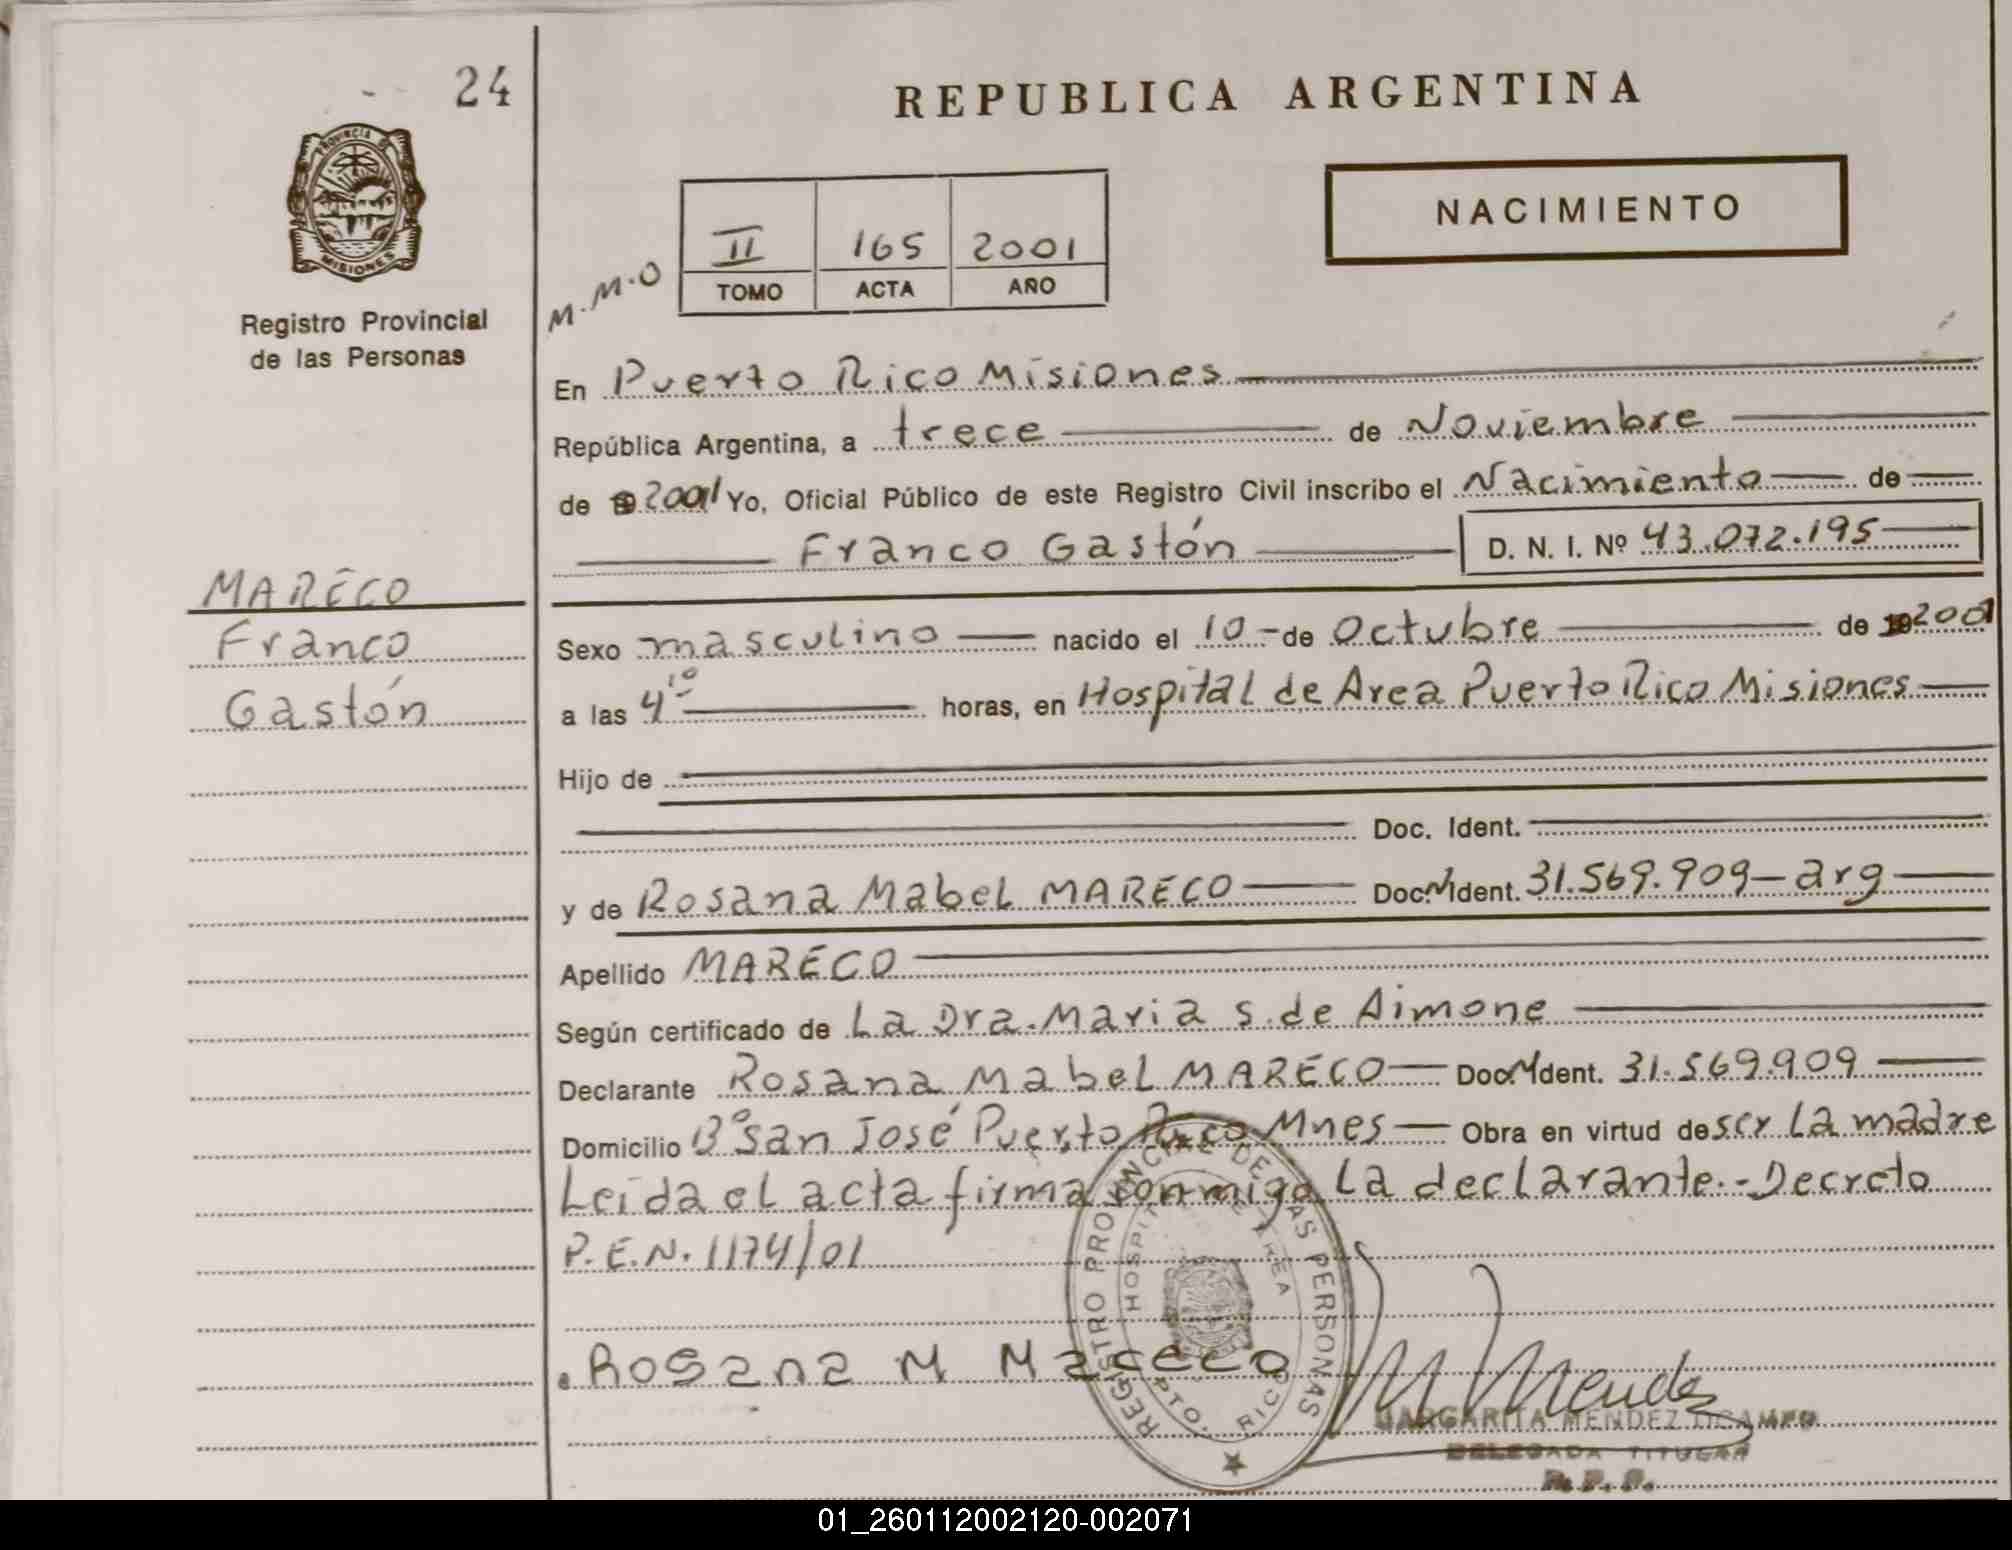 24
REPUBLICA ARGENTINA
PROVINCIA DE
MISIONES
Registro Provincial
de las Personas
NACIMIENTO
M.M.O
II 165 2001
TOMO ACTA AÑO
En Puerto Rico Misiones
República Argentina, a trece de Noviembre
de 2001 Yo, Oficial Público de este Registro Civil inscribo el Nacimiento de
Franco Gastón D. N. I. Nº 43.072.195
MARECO
Franco
Gastón
Sexo masculino nacido el 10 - de Octubre de 2001
a las 4 10 horas, en Hospital de Area Puerto Rico Misiones
Hijo de
Doc. Ident.
y de Rosana Mabel MARECO Doc. Ident. 31.569.909 - arg
Apellido MARECO
Según certificado de La Dra. Maria S. de Aimone
Declarante Rosana Mabel MARECO Doc. Ident. 31.569.909
Domicilio Bº San José Puerto Rico Mnes Obra en virtud de ser La madre
Leida el acta firma conmigo La declarante.- Decreto
P.E.N. 1174/01
REGISTRO PROVINCIAL DE LAS PERSONAS
HOSPITAL DE AREA
PTO. RICO
Rosana M Mareco
M Mendez
MARGARITA MENDEZ OCAMPO
DELEGADA TITULAR
R.P.P.
01_260112002120-002071